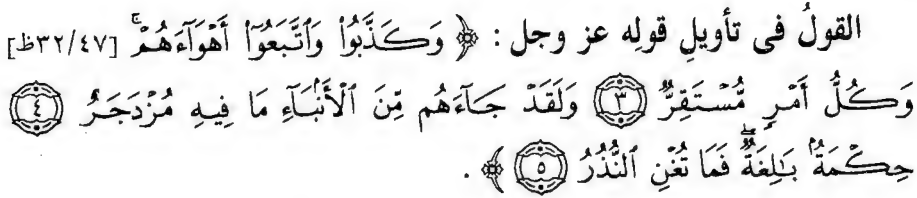 القولُ فى تأويلِ قولِه عز وجل : ﴿ وَكَذَّبُوا۟ وَٱتَّبَعُوٓا۟ أَهْوَآءَهُمْ ۚ [٣٢/٤٧ظ]
وَكُلُّ أَمْرٍ مُّسْتَقِرٌّ ﴿٣﴾ وَلَقَدْ جَآءَهُم مِّنَ ٱلْأَنۢبَآءِ مَا فِيهِ مُزْدَجَرٌ ﴿٤﴾
حِكْمَةٌۢ بَـٰلِغَةٌ ۖ فَمَا تُغْنِ ٱلنُّذُرُ ﴿٥﴾ ﴾ .